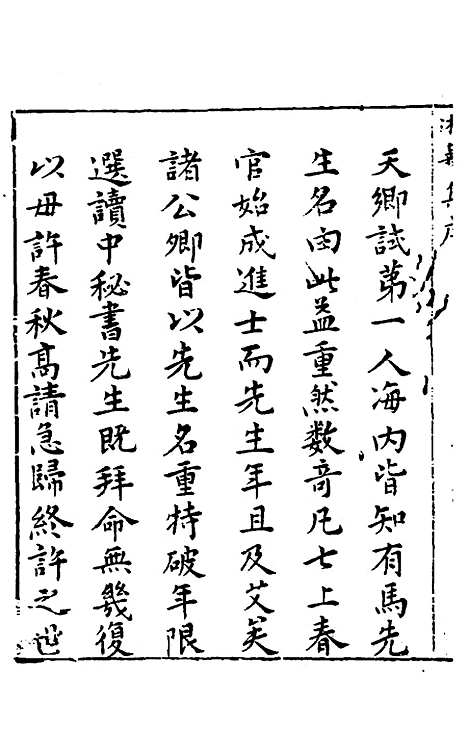 天鄉試第一人海內皆知有馬先
生名由此益重然數奇凡七上春
官始成進士而先生年且及艾矣
諸公卿皆以先生名重特破年限
選讀中秘書先生既拜命無幾復
以母許春秋高請急歸終許之世